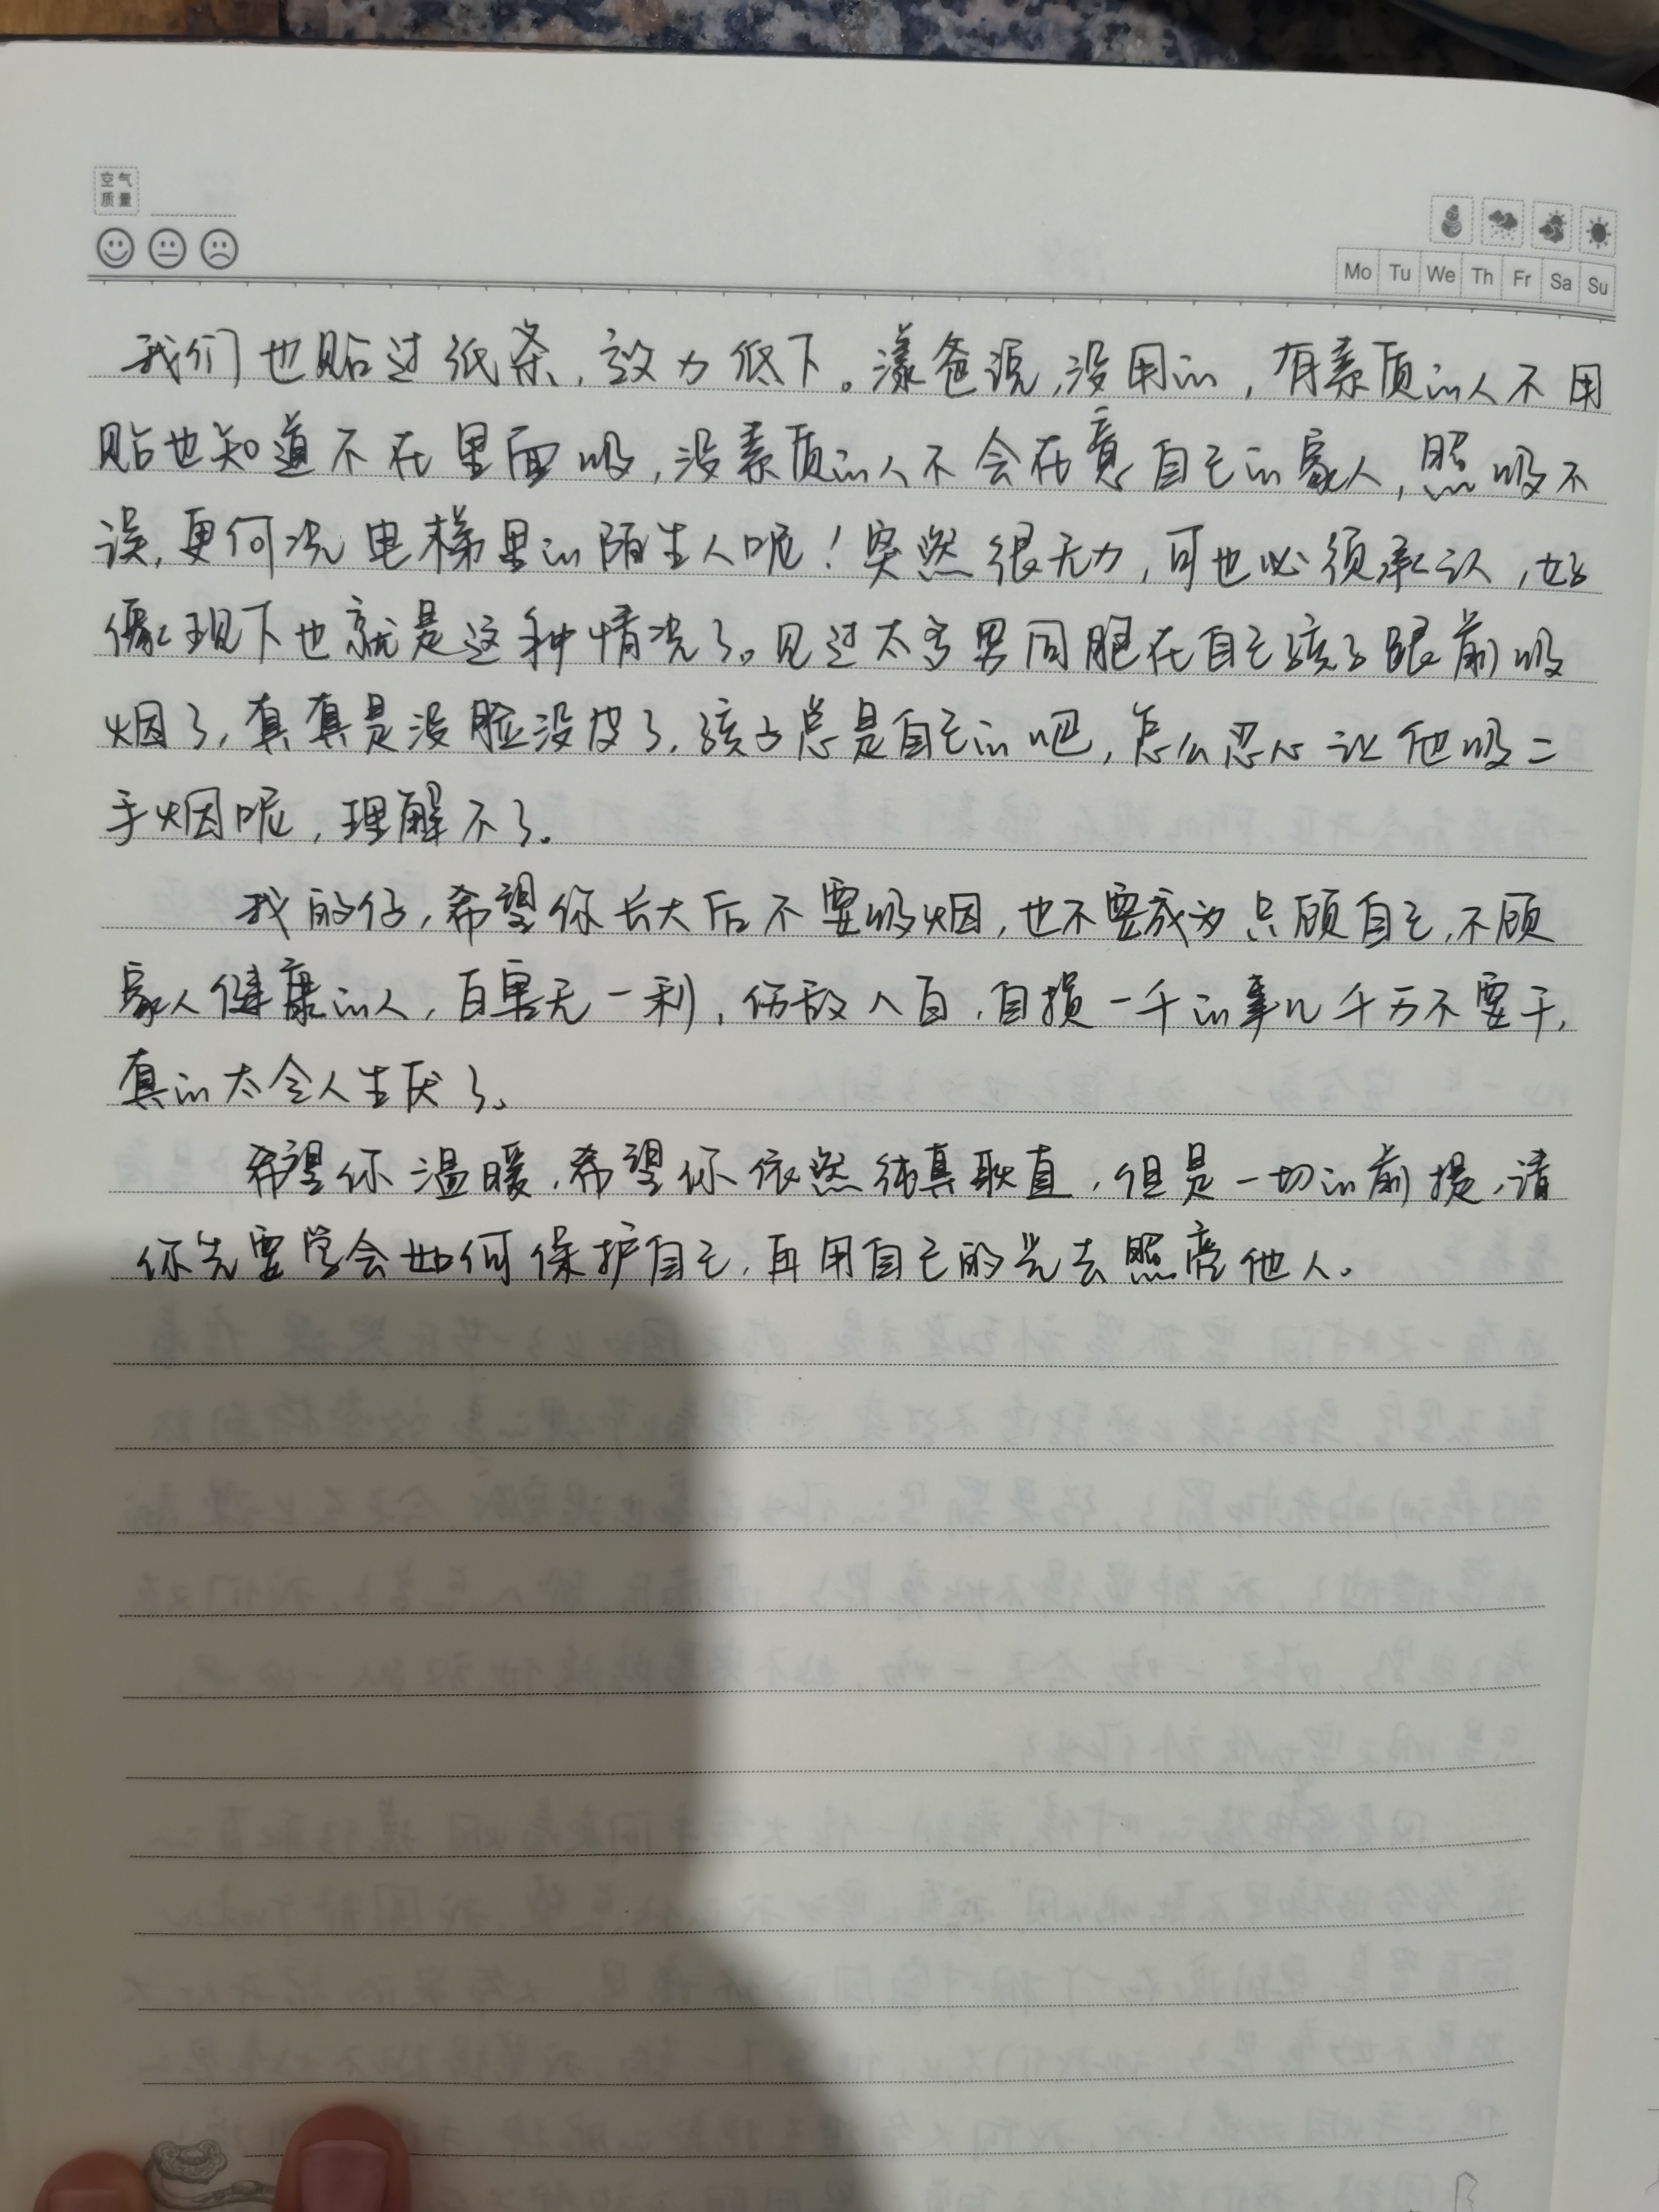 空气
质量
Mo Tu We Th Fr Sa Su
我们也贴过纸条，效力低下。漾爸说，没用的，有素质的人不用
贴也知道不在里面吸，没素质的人不会在意自己的家人，照吸不
误，更何况电梯里的陌生人呢！突然很无力，可也必须承认，好
像现下也就是这种情况了。见过太多男同胞在自己孩子跟前吸
烟了，真真是没脸没皮了，孩子总是自己的吧，怎么忍心让他吸二
手烟呢，理解不了。
我的仔，希望你长大后不要吸烟，也不要成为只顾自己，不顾
家人健康的人，百害无一利，伤敌八百，自损一千的事儿千万不要干，
真的太令人生厌了。
希望你温暖，希望你依然纯真耿直，但是一切的前提，请
你先要学会如何保护自己，再用自己的光去照亮他人。